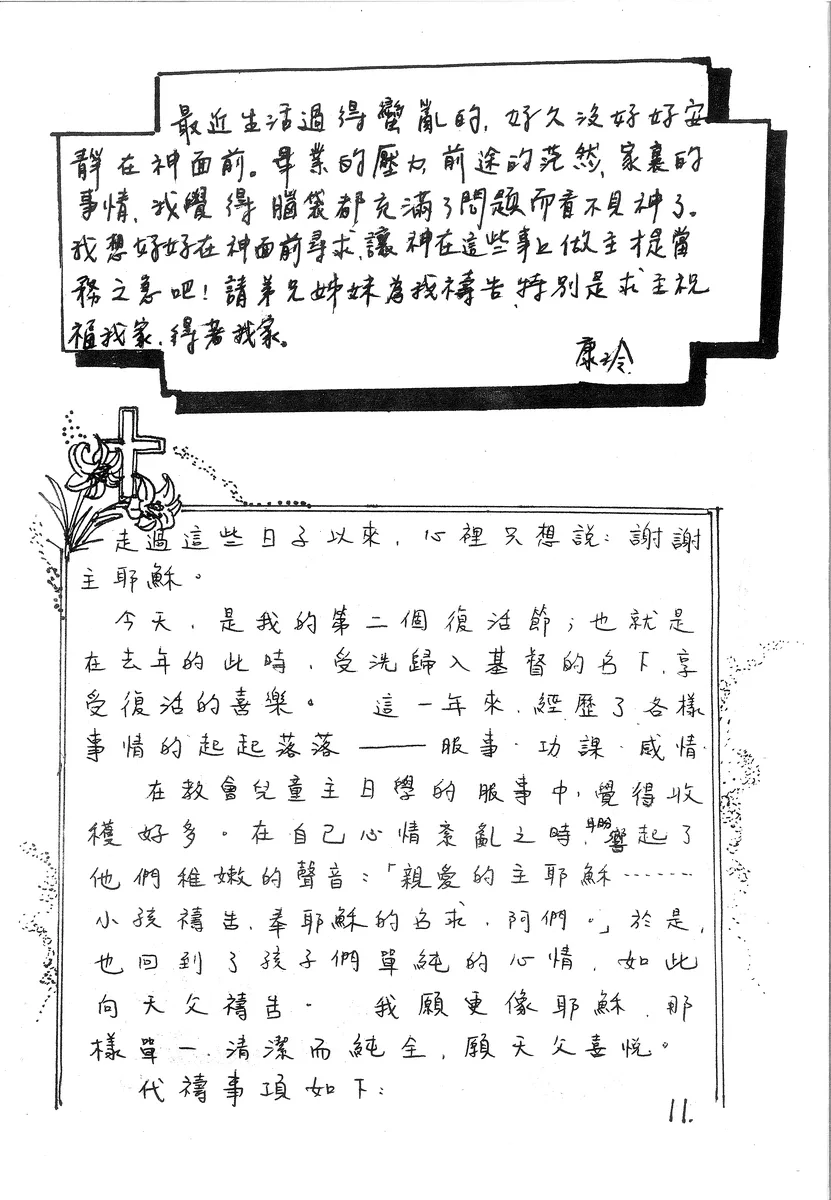 最近生活過得蠻亂的，好久沒好好安
靜在神面前。畢業的壓力，前途的茫然，家裏的
事情，我覺得腦袋都充滿了問題而看不見神了。
我想好好在神面前尋求，讓神在這些事上做主才是當
務之急吧！請弟兄姊妹為我禱告，特別是求主祝
福我家，得著我家。
康玲
走過這些日子以來，心裡只想說：謝謝
主耶穌。
今天，是我的第二個復活節；也就是
在去年的此時，受洗歸入基督的名下，享
受復活的喜樂。 這一年來，經歷了各樣
事情的起起落落——服事．功課．感情．
在教會兒童主日學的服事中，覺得收
穫好多。在自己心情紊亂之時，耳盼響起了
他們稚嫩的聲音：「親愛的主耶穌……
小孩禱告，奉耶穌的名求，阿們。」於是，
也回到了孩子們單純的心情，如此
向天父禱告。 我願更像耶穌，那
樣單一，清潔而純全，願天父喜悅。
代禱事項如下：
11.